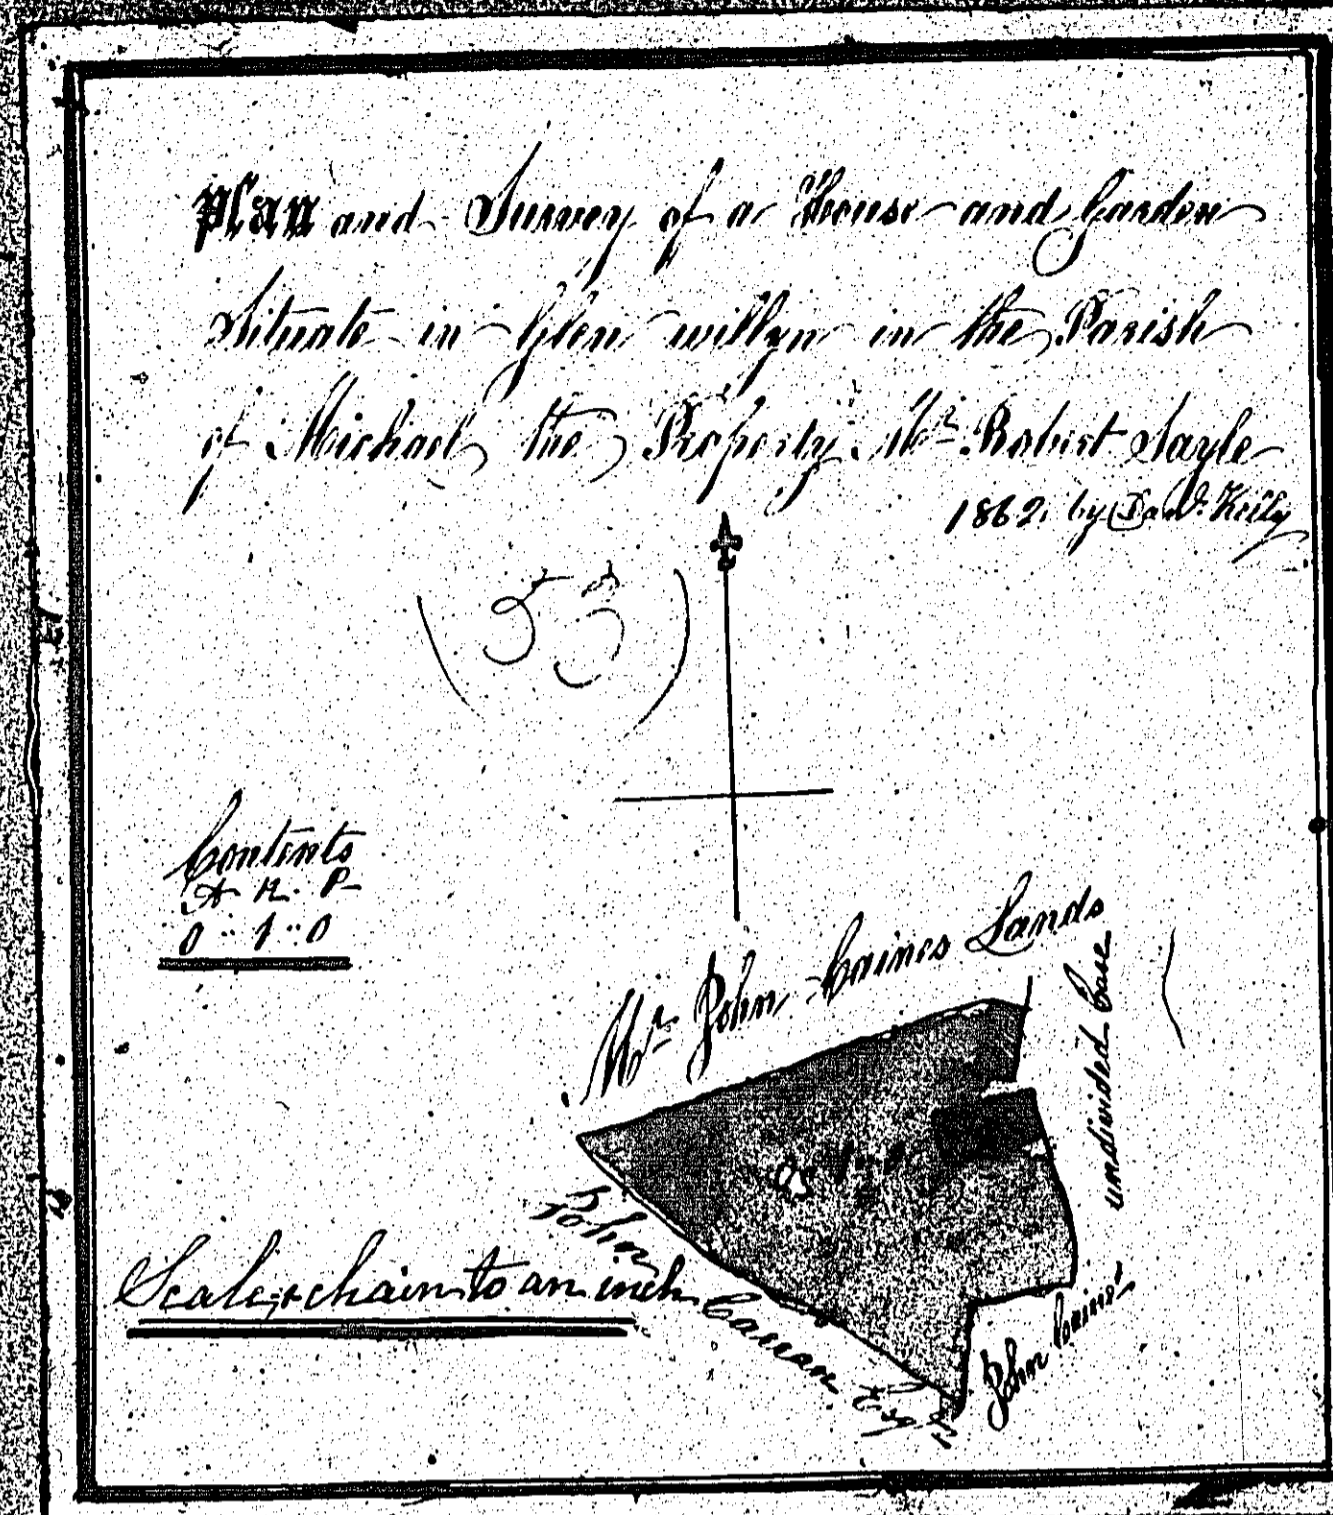 Plan and Survey of a House and Garden
Situate in Glen willyn in the Parish
of Michael the Property Mr Robert Sayle
1862 by Danl. Kelly
Contents
A R. P
0 .. 1 .. 0
Mr John Caines Lands
undivided
John
Esqr
John Caine
Scale chain to an inch